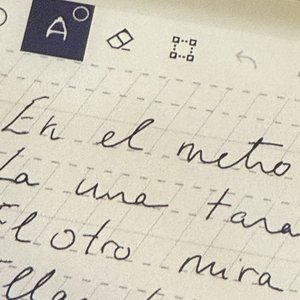 A
En el metro
La una tara
El otro mira
Ella